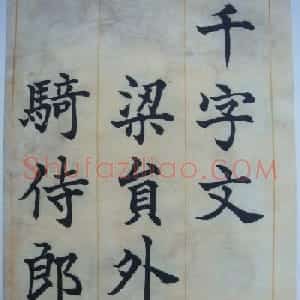 千字文
梁貟外
騎侍郎
Shufaziliao.COM